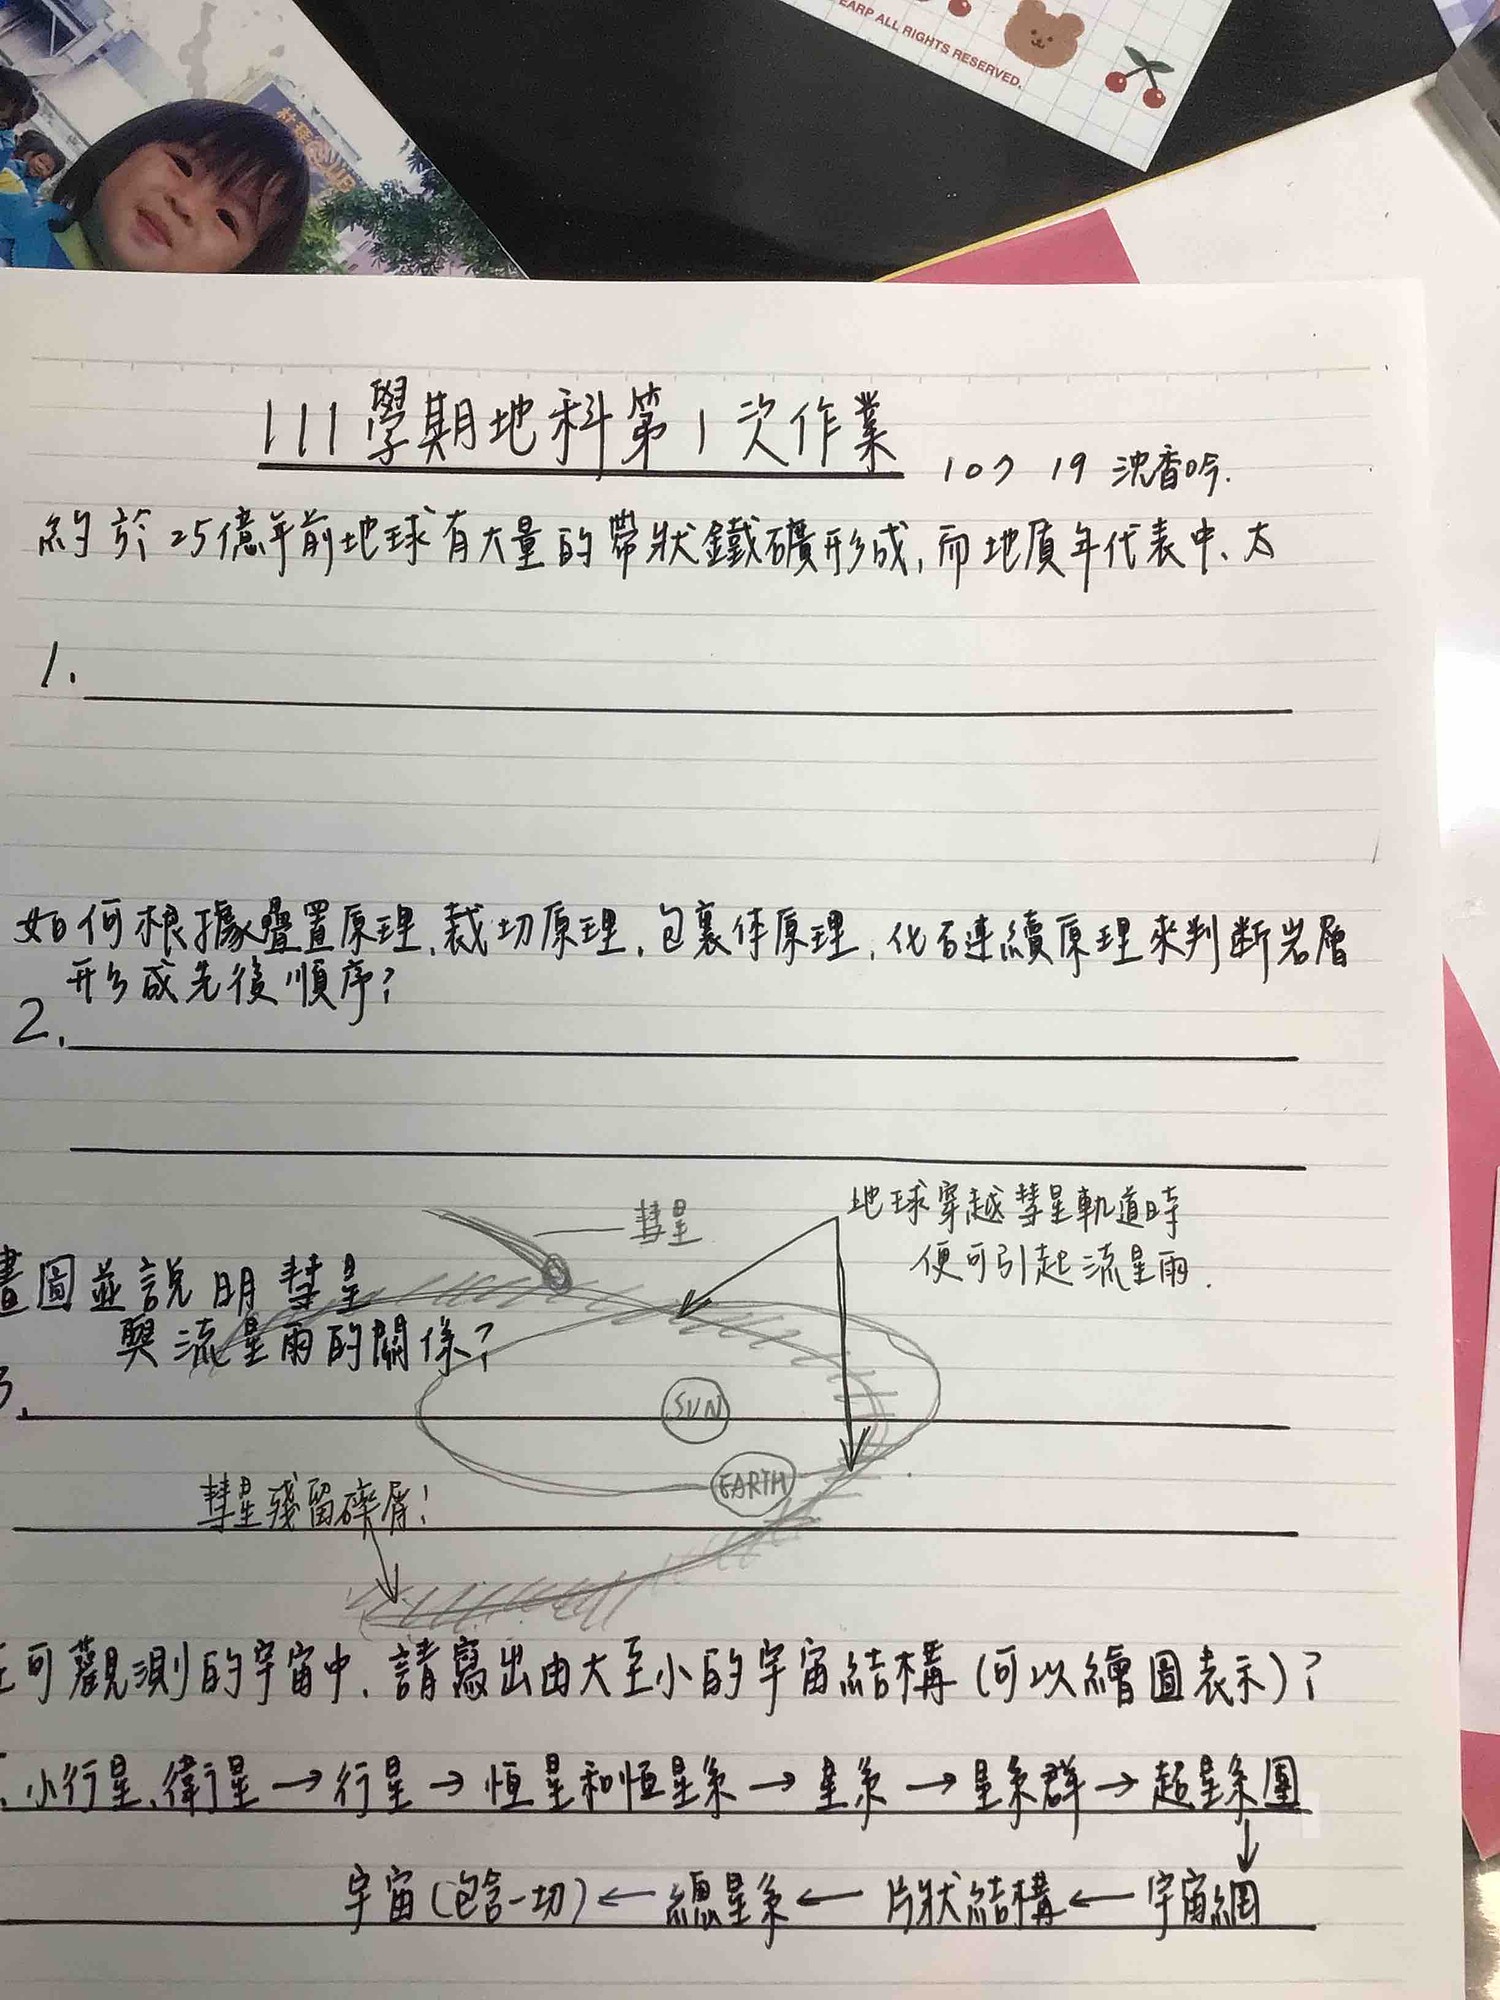 EARP ALL RIGHTS RESERVED.
111學期地科第1次作業
107 19 沈香吟.
約於25億年前地球有大量的帶狀鐵礦形成,而地質年代表中、太
1.
如何根據疊置原理、裁切原理、包裹体原理、化石連續原理來判斷岩層
形成先後順序?
2.
彗星
地球穿越彗星軌道時
便可引起流星雨.
畫圖並説明彗星
與流星雨的關係?
3.
SUN
EARTH
彗星殘留碎屑!
可觀測的宇宙中、請寫出由大至小的宇宙結構(可以繪圖表示)?
小行星、衛星→行星→恒星和恒星系→星系→星系群→超星系團
↓
宇宙(包含一切)←總星系←片狀結構←宇宙網